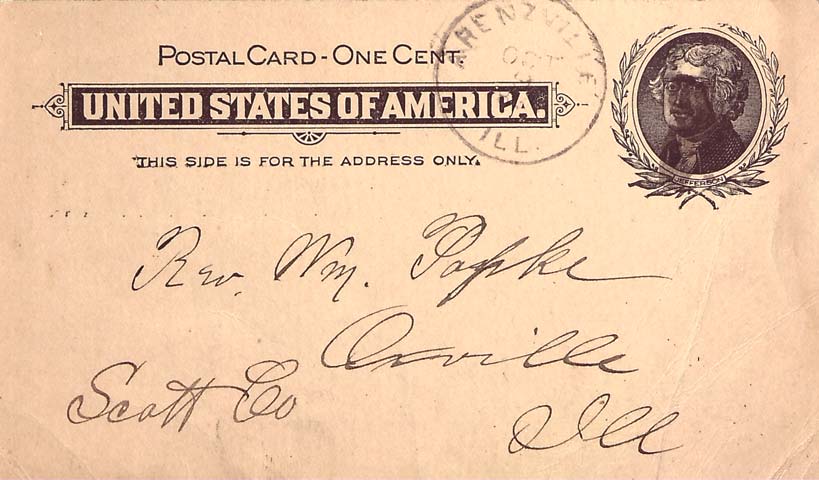 POSTAL CARD - ONE CENT.
UNITED STATES OF AMERICA.
THIS SIDE IS FOR THE ADDRESS ONLY.
ARENZVILLE
OCT
ILL.
JEFFERSON
Rev. Wm. Papke
Orville
Scott Co
Ill